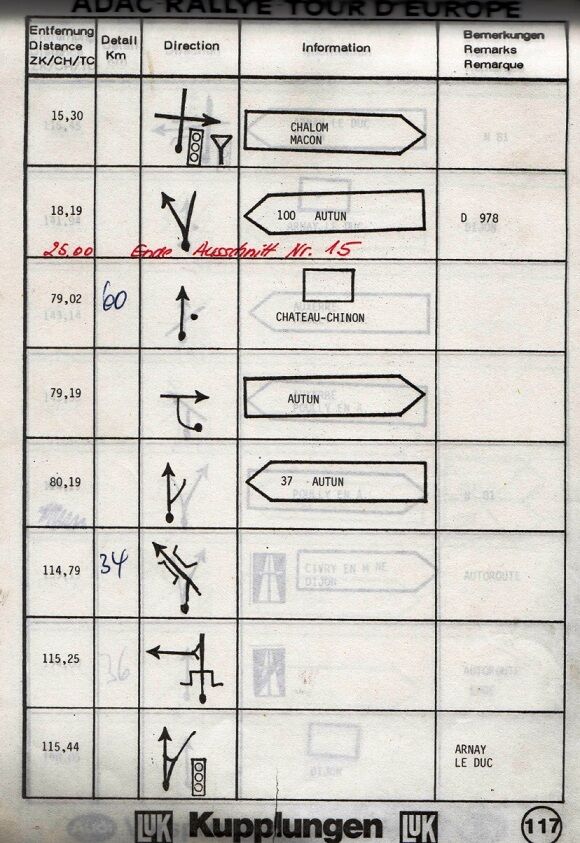 ADAC-RALLYE TOUR D'EUROPE
Entfernung
Distance
ZK/CH/TC
Detail
Km
Direction
Information
Bemerkungen
Remarks
Remarque
15,30
CHALOM
MACON
18,19
100 AUTUN
D 978
25.00 Ende Ausschnitt Nr. 15
79,02
60
CHATEAU-CHINON
79,19
AUTUN
80,19
37 AUTUN
114,79
34
115,25
115,44
ARNAY
LE DUC
LUK Kupplungen LUK
117